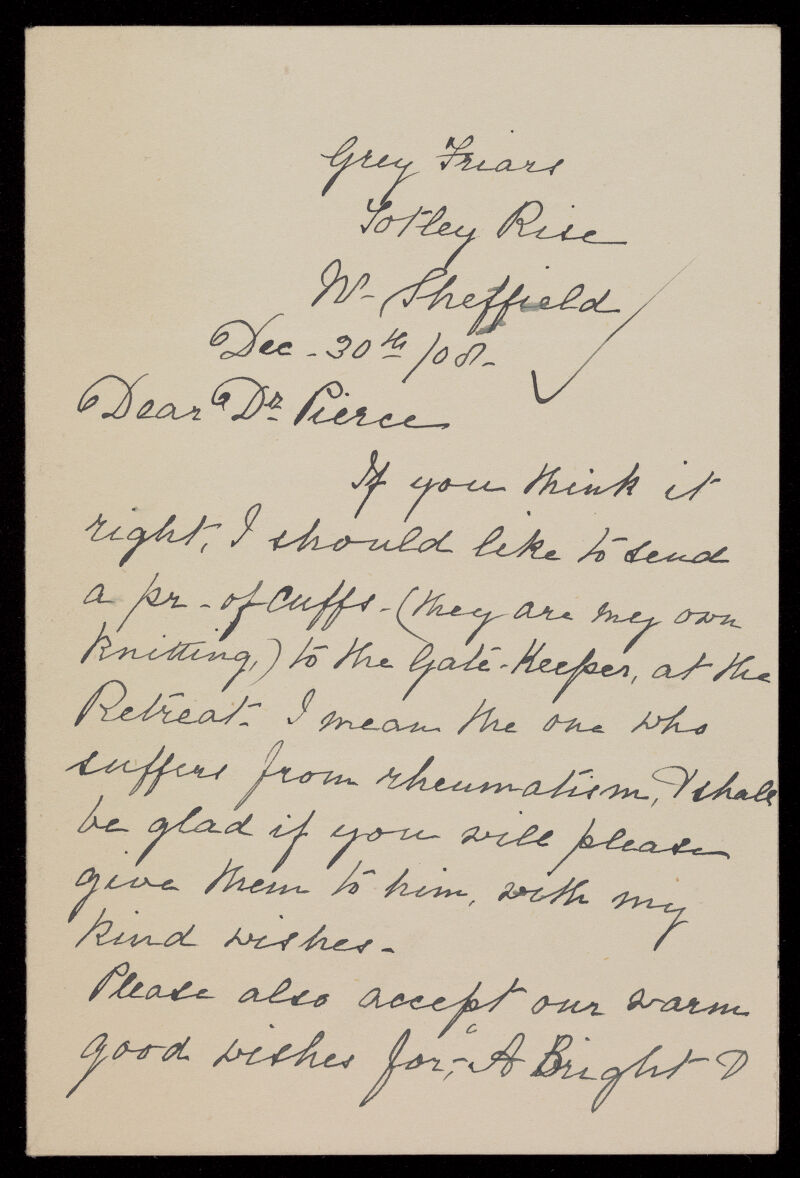 Grey Friars
Totley Rise
Nr- Sheffield
Dec - 30th /08-
Dear Dr Pierce
If you think it
right, I should like to send
a pr - of cuffs - (they are my own
knitting,) to the Gate-Keeper, at the
Retreat. I mean the one who
suffers from rheumatism, & shall
be glad if you will please
give them to him, with my
kind wishes -
Please also accept our warm
good wishes for, - "A Bright &